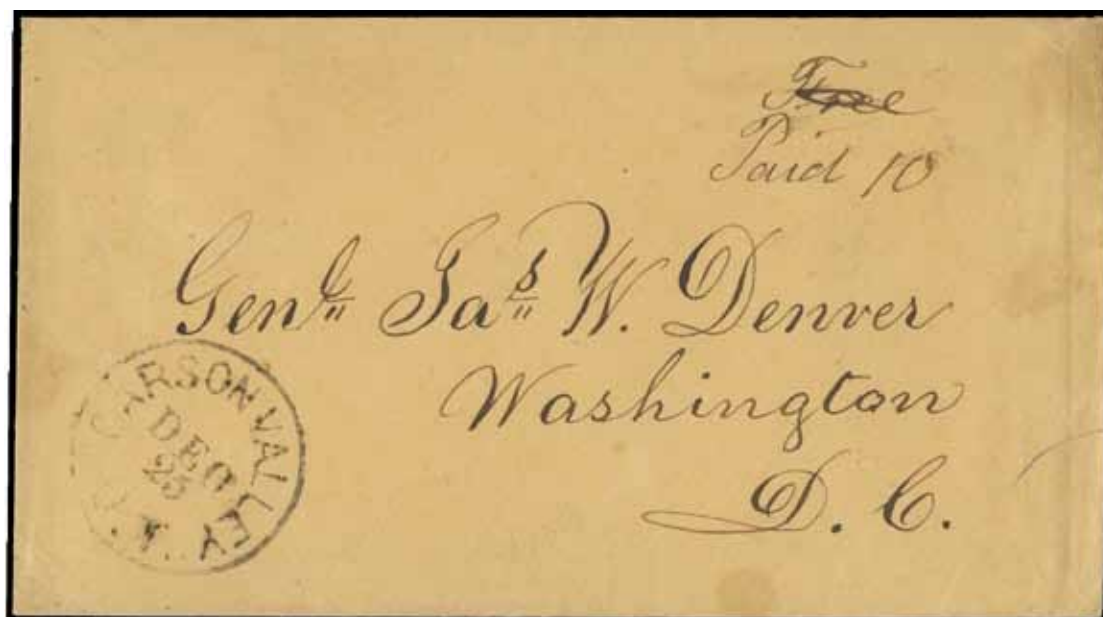 Free
Paid 10
Genl Jas W. Denver
Washington
D. C.
CARSON VALLEY
DEC
25
U.T.